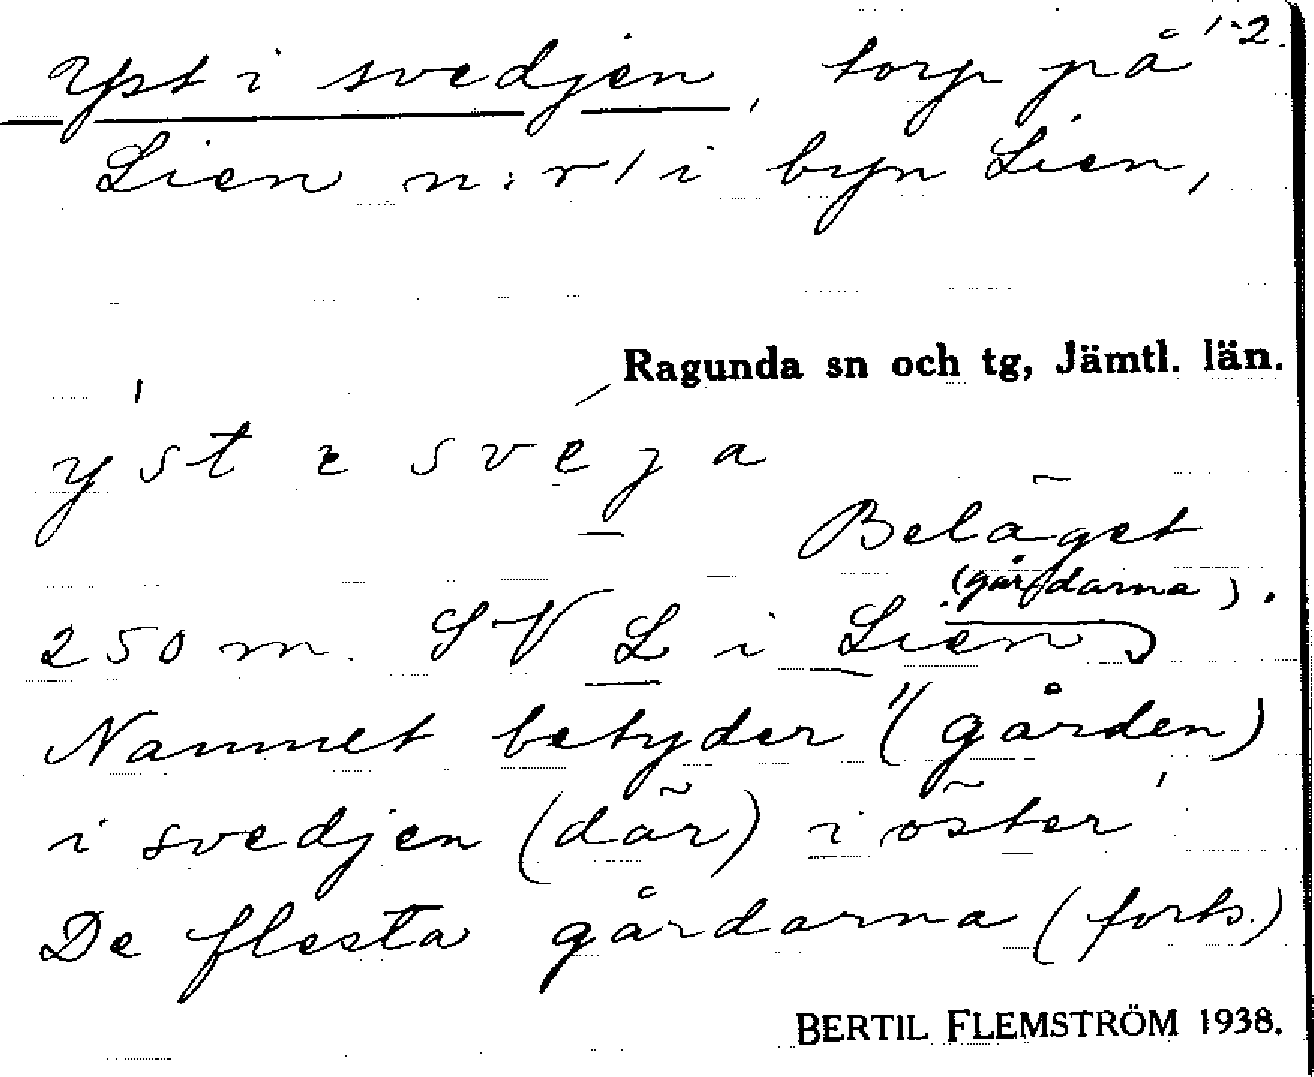 1-2.
Yst i svedjen, torp på
Lien n:r 1 i byn Lien,
Ragunda sn och tg, Jämtl. län.
ýst ɛ svéja
Beläget
(gårdarna).
250 m. SV L i Lien
Namnet betyder "(gården)
i svedjen (där) i öster'
De flesta gårdarna (forts.)
BERTIL FLEMSTRÖM 1938.